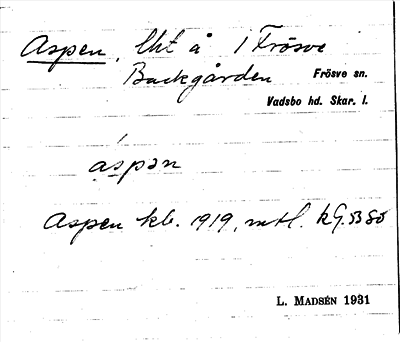 Aspen, lht å 1 Frösve
Backgården Frösve sn.
Vadsbo hd. Skar. l.
áspən
Aspen kb. 1919, mtl. kG. 53 SO
L. MADSÉN 1931